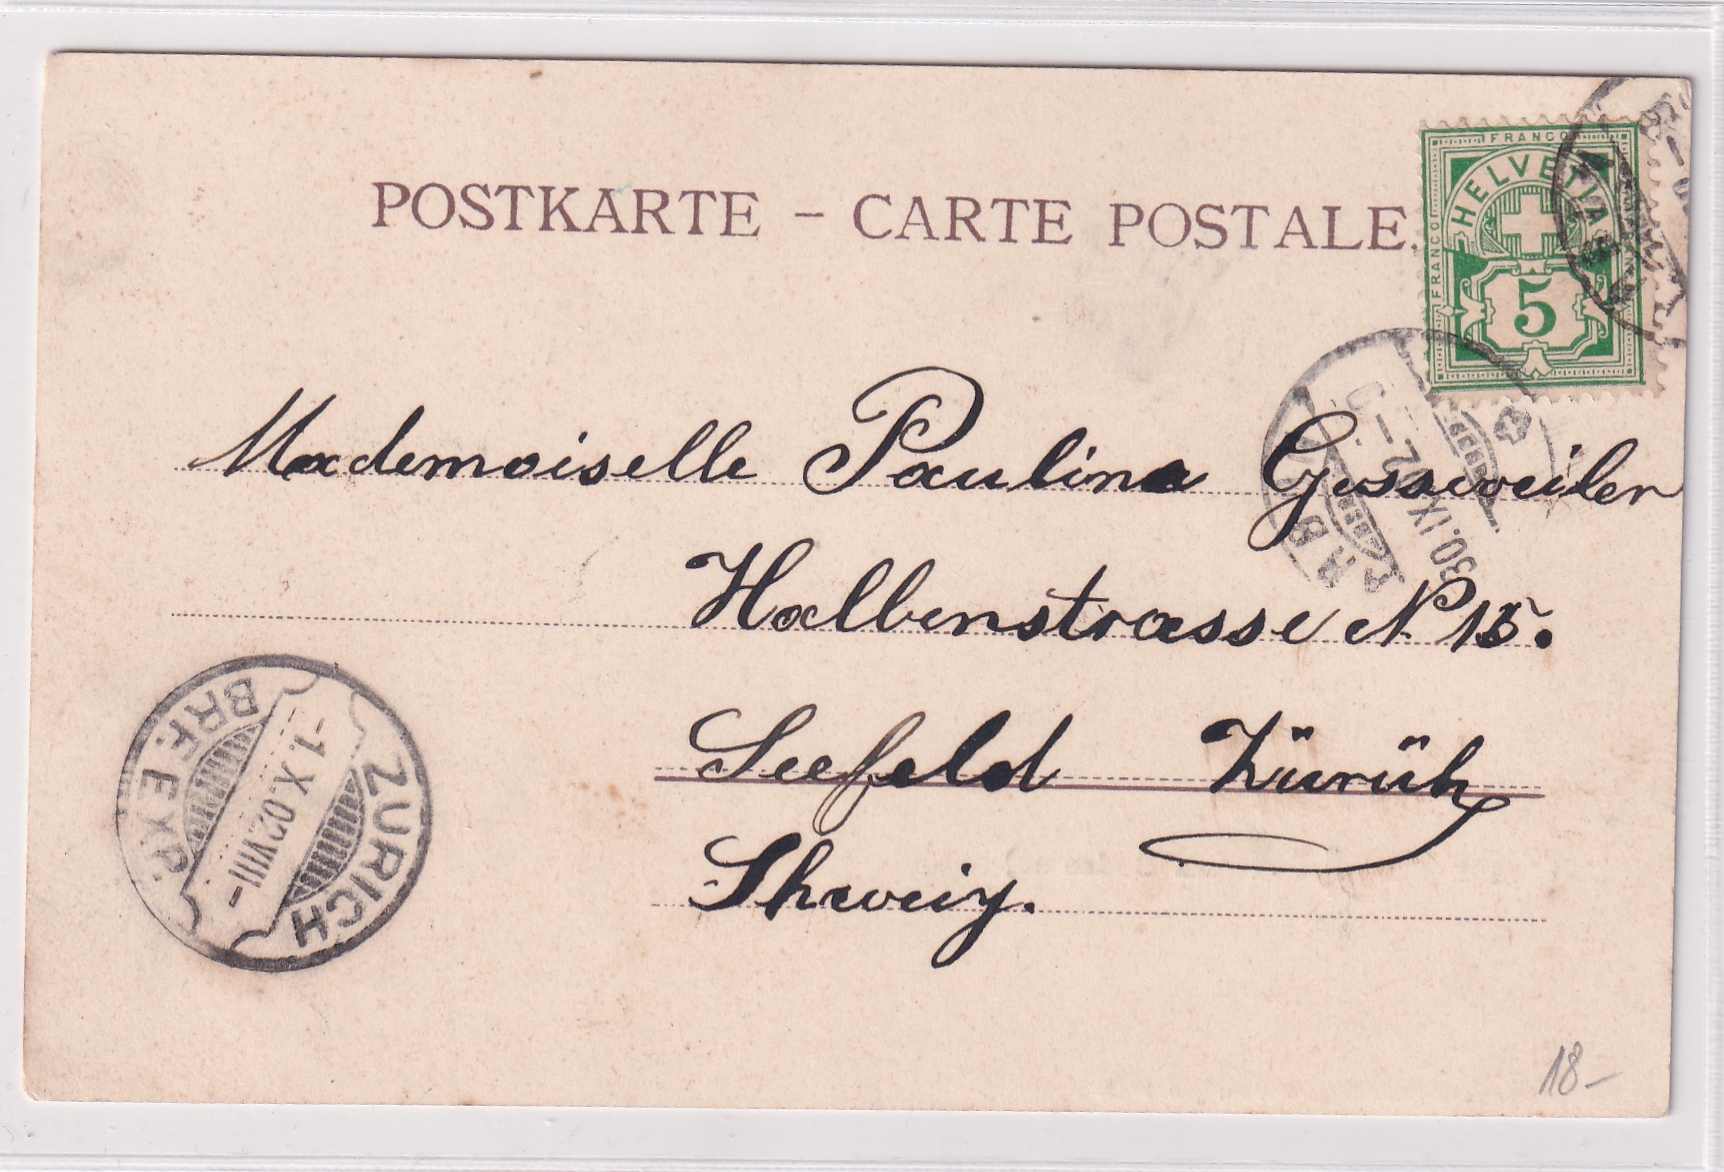 POSTKARTE – CARTE POSTALE.
FRANCO
HELVETIA
FRANCO
5
30.IX
Mademoiselle Paulina Gossweiler
Halbenstrasse N 15.
Seefeld Zürüh
Shweiz.
ZÜRICH
-1.X.02.VIII-
BRF. EXP.
18-